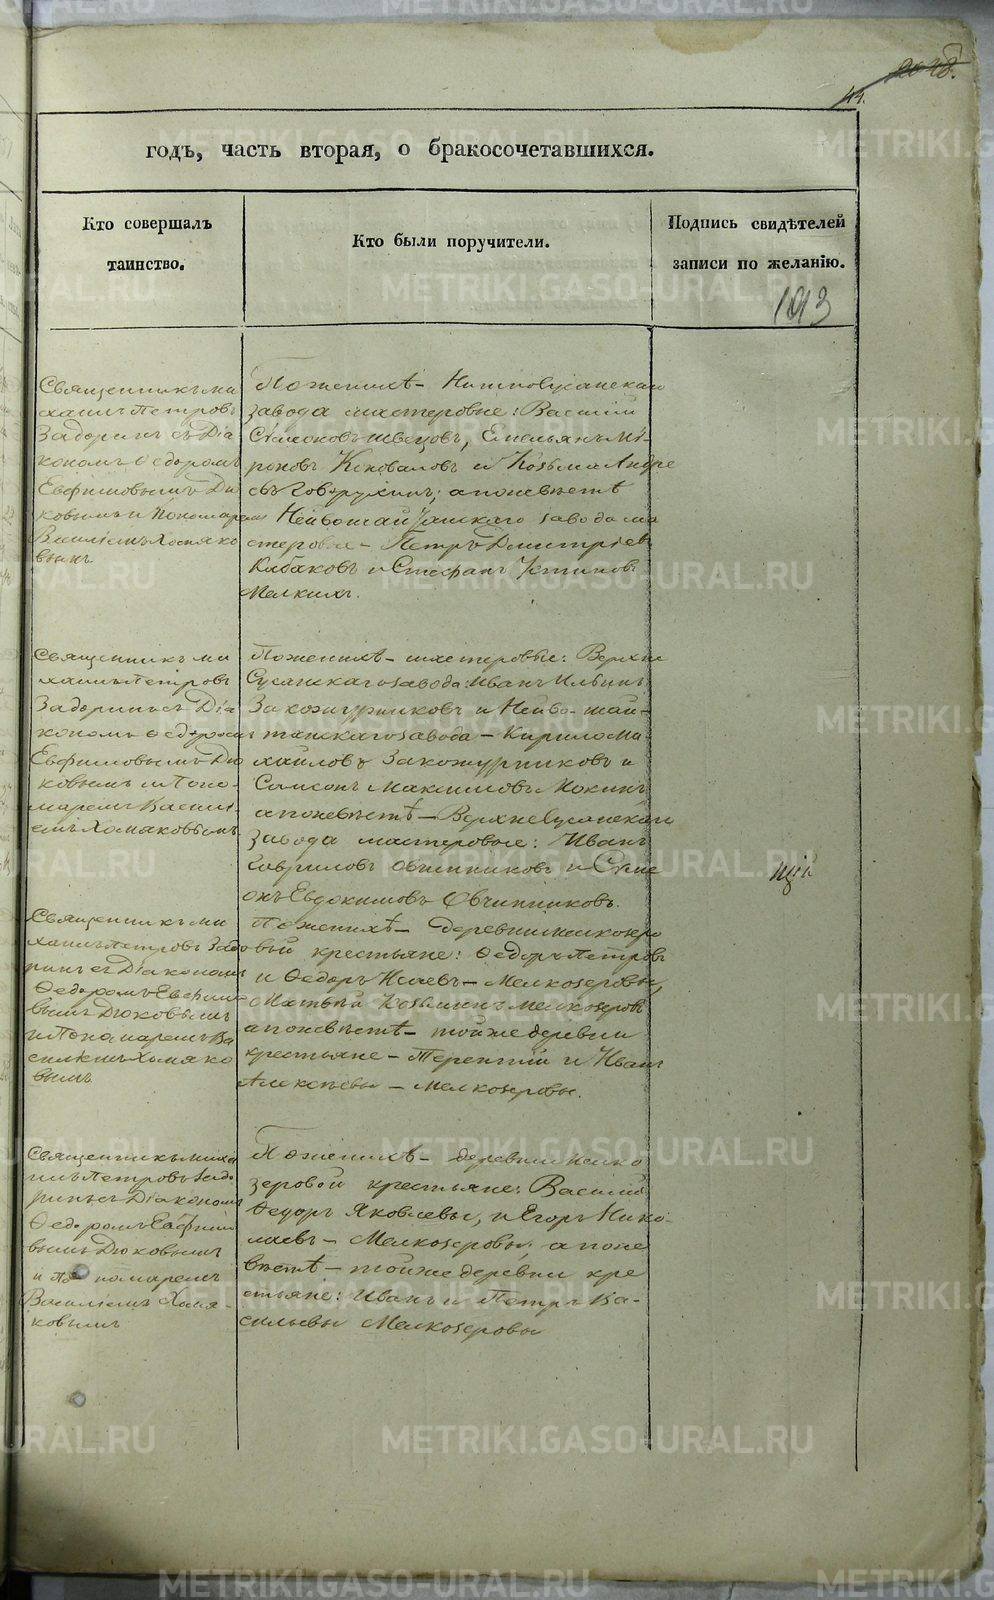 44.
годъ, часть вторая, о бракосочетавшихся.
Кто совершалъ
таинство.
Кто были поручители.
Подпись свидѣтелей
записи по желанію.
1013
Священникъ Ми
хаилъ Петровъ
Задоринъ съ Діа
кономъ Ѳедоромъ
Евфимовымъ Дю
ковымъ и Пономаремъ
Василіемъ Хомяко
вымъ
По женихѣ –
завода мастеровые: Василій
Симоновъ Швецовъ, Емельянъ Ми-
роновъ Коноваловъ и Козьма Андре
евъ Говорухинъ; а по невѣстѣ
Нейвошайтанскаго завода ма
стеровые – Петръ Дмитріевъ
Кабаковъ и Стефанъ Устиновъ
Мелкихъ.
Священникъ Ми
хаилъ Петровъ
Задоринъ съ Діа
кономъ Ѳедоромъ
Евфимовымъ Дю
ковымъ и Поно-
маремъ Васил
емъ Хомяковымъ
По женихѣ – мастеровые: Верхне
Сусанскаго завода: Иванъ Ильинъ
Закожурниковъ и Нейво-шай-
танскаго завода – Кирило Ми
хайловъ Закожурниковъ и
Самсонъ Максимовъ Кокинъ
а по невѣстѣ – Верхне Сусанскаго
завода мастеровые: Иванъ
Гавриловъ Овчинниковъ и Симе
онъ Евдокимовъ Овчинниковъ.
Священникъ Ми
хаилъ Петровъ Задо
ринъ съ Діакономъ
Ѳедоромъ Евфимо
вымъ Дюковымъ
и Пономаремъ Ва
силіемъ Хомяко
вымъ
По женихѣ – деревни Мелкозеро
вой крестьяне: Ѳедоръ Петровъ
и Ѳедоръ Исаевъ – Мелкозеровы,
Матвѣй Козьминъ Мелкозеровъ
а по невѣстѣ – той же деревни
крестьяне – Терентій и Иванъ
Алексѣевы – Мелкозеровы.
Священникъ Миха
илъ Петровъ Задо
ринъ съ Діакономъ
Ѳедоромъ Евфимо
вымъ Дюковымъ
и Пономаремъ
Василіемъ Хомя-
ковымъ
По женихѣ – деревни Мелко
зеровой крестьяне: Василій
Ѳедоръ Яковлевы, и Егоръ Нико-
лаевъ – Мелкозеровы, а по не
вѣстѣ – той же деревни кре
стьяне: Иванъ и Петръ Ва-
сильевы Мелкозеровы
METRIKI.GASO-URAL.RU